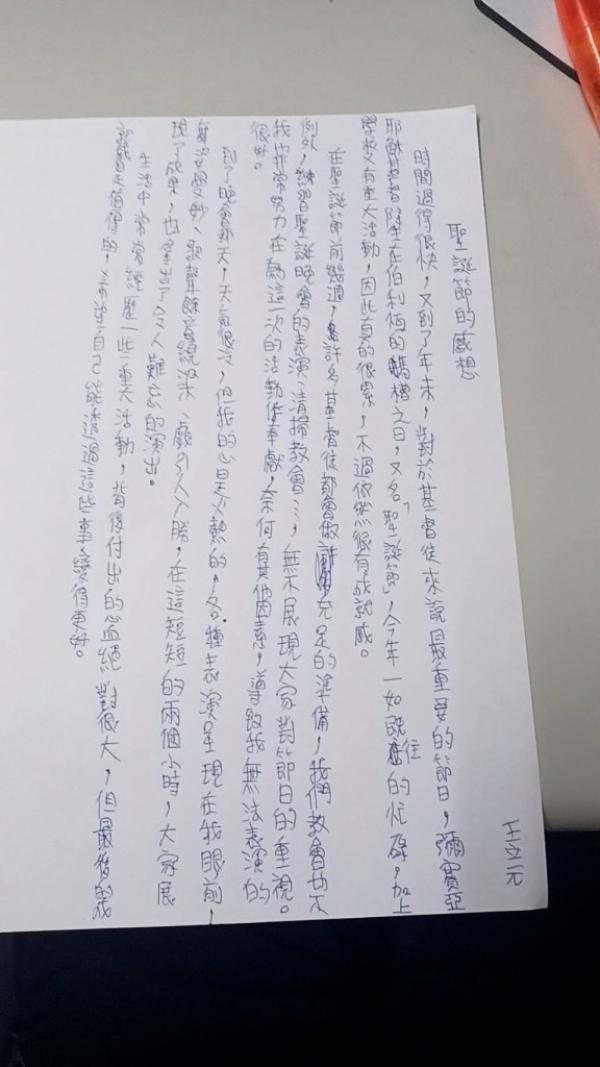 聖誕節的感想
王立元
時間過得很快，又到了年末，對於基督徒來說最重要的節日，彌賽亞
耶穌基督降生在伯利恆的馬槽之日，又名「聖誕節」，今年一如既往的忙碌，加上
學校又有重大活動，因此真的很累，不過依然很有成就感。
在聖誕節前幾週，許多基督徒都會做充足的準備，我們教會也不
例外，練習聖誕晚會的表演、清掃教會…，無不展現大家對節日的重視。
我也非常努力在為這一次的活動後奉獻，奈何有其他因素，導致我無法表演的
很好。
到了晚會那天，天氣很冷，但我的心是火熱的，各種表演呈現在我眼前，
舞姿曼妙、歌聲餘音繞梁、戲引人入勝，在這短短的兩個小時，大家展
現了成果，也拿出了令人難忘的演出。
生活中常常經歷一些重大活動，背後付出的當絕對很大，但最後的我
都是值得的，希望自己能透過這些事變得更好。